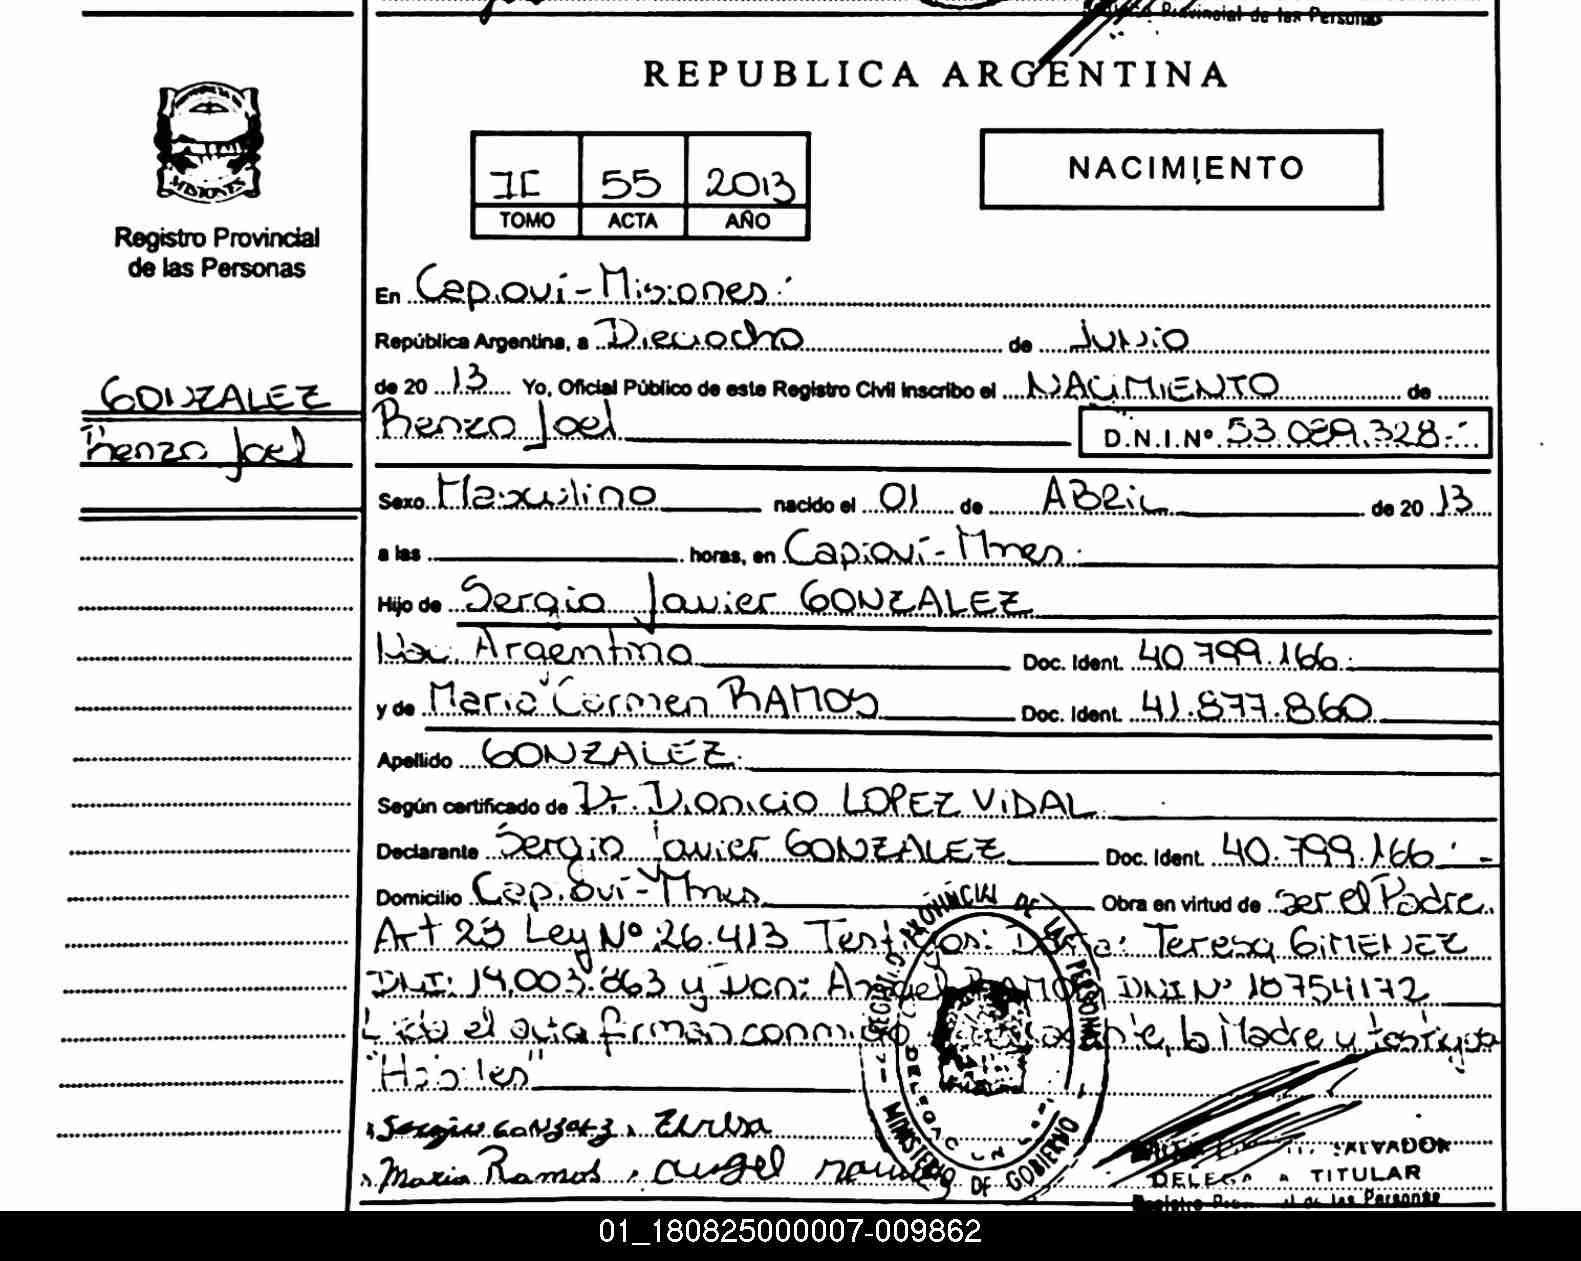 Registro Provincial de las Personas
REPUBLICA ARGENTINA
MISIONES
Registro Provincial
de las Personas
II 55 2013
TOMO ACTA AÑO
NACIMIENTO
En Capioví-Misiones
República Argentina, a Dieciocho de Junio
de 20 13 Yo, Oficial Público de este Registro Civil inscribo el NACIMIENTO de
GONZALEZ
Renzo Joel
Renzo Joel D.N.I.Nº 53.089.328
Sexo Masculino nacido el 01 de ABRIL de 20 13
a las horas, en Capioví-Mnes.
Hijo de Sergio Javier GONZALEZ
Nac. Argentino Doc. Ident. 40.799.166
y de Maria Carmen RAMOS Doc. Ident. 41.877.860
Apellido GONZALEZ
Según certificado de Dr. Dionicio LOPEZ VIDAL
Declarante Sergio Javier GONZALEZ Doc. Ident. 40.799.166
Domicilio Capioví-Mnes Obra en virtud de ser el Padre.
Art 23 Ley Nº 26.413 Testigos: Doña: Teresa GIMENEZ
DNI: 14.003.863 y Don: Angel RAMOS DNI Nº 18754172
Leido el acta firman conmigo la Madre y testigos
"Habiles"
Sergio GONZALEZ
Maria Ramos angel
REGISTRO PROVINCIAL DE LAS PERSONAS
MINISTERIO DE GOBIERNO
SALVADOR
TITULAR
Registro Provincial de las Personas
01_180825000007-009862